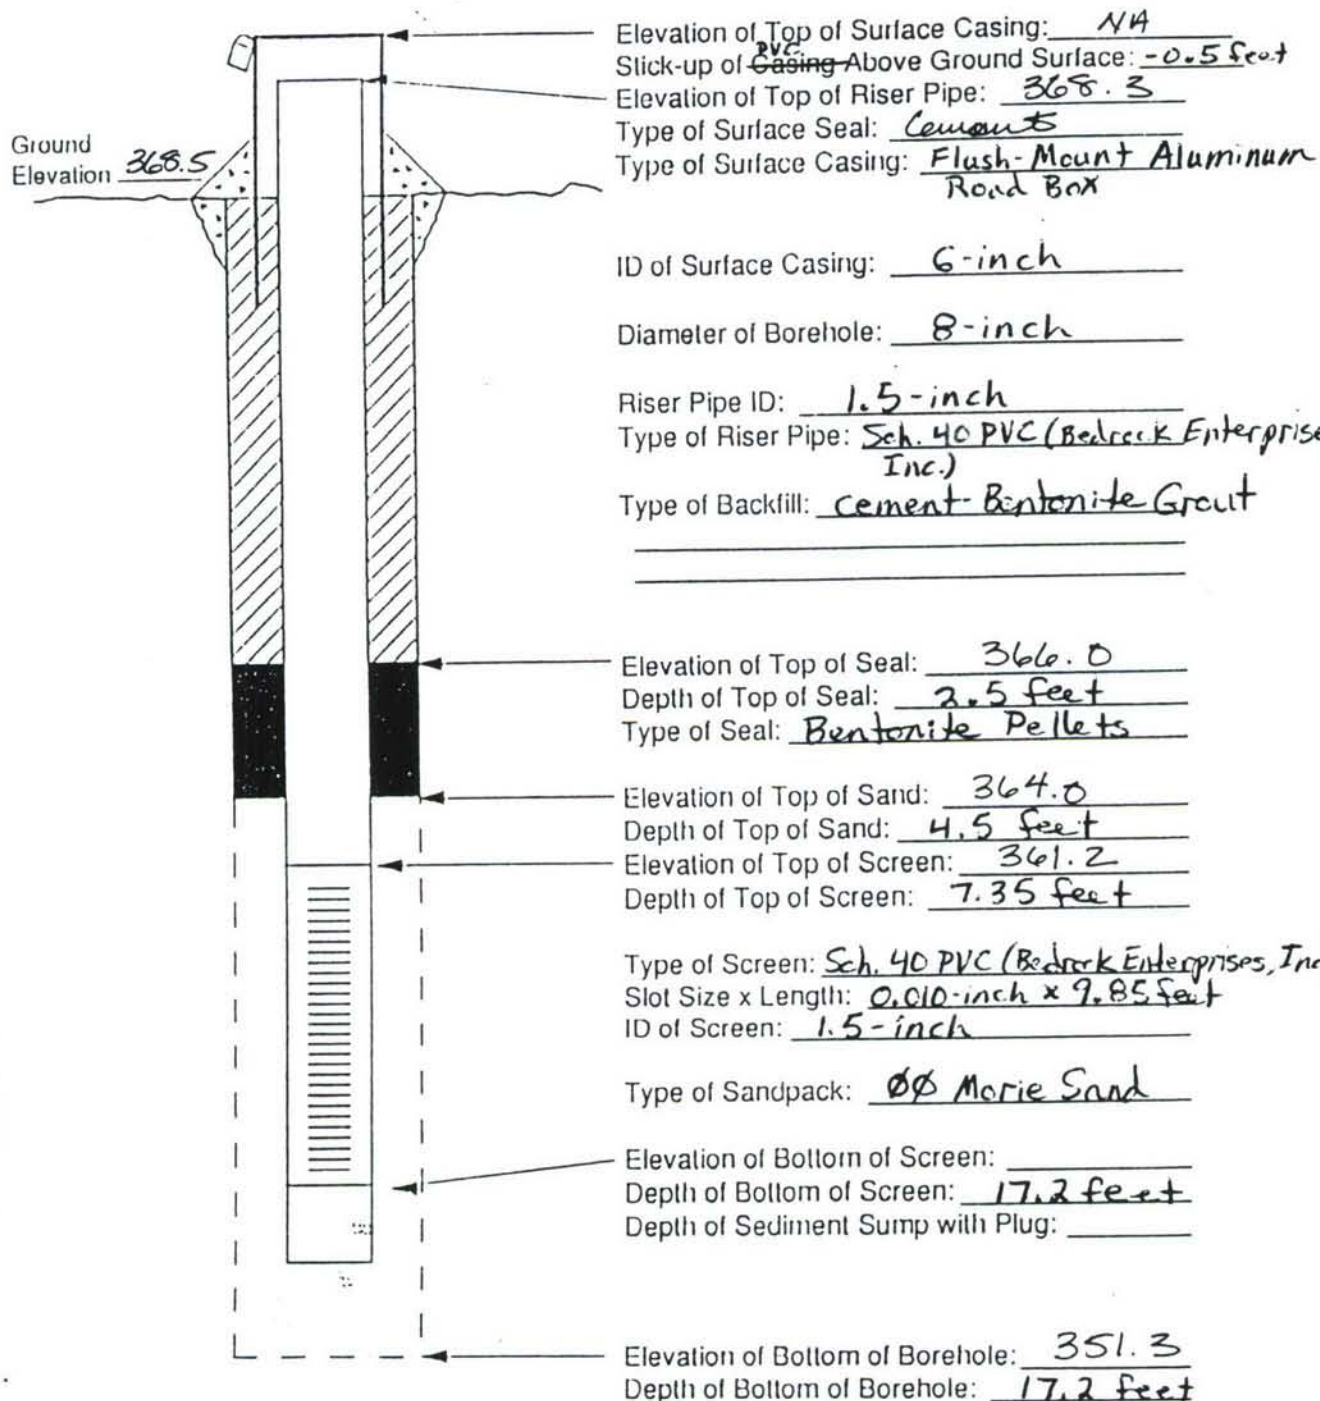 Elevation of Top of Surface Casing: NA
PVC
Stick-up of Casing Above Ground Surface: -0.5 feet
Elevation of Top of Riser Pipe: 368.3
Type of Surface Seal: Cement
Type of Surface Casing: Flush-Mount Aluminum
Road Box
Ground
Elevation 368.5
ID of Surface Casing: 6-inch
Diameter of Borehole: 8-inch
Riser Pipe ID: 1.5-inch
Type of Riser Pipe: Sch. 40 PVC (Bedrock Enterprise
Inc.)
Type of Backfill: Cement-Bentonite Grout
Elevation of Top of Seal: 366.0
Depth of Top of Seal: 2.5 feet
Type of Seal: Bentonite Pellets
Elevation of Top of Sand: 364.0
Depth of Top of Sand: 4.5 feet
Elevation of Top of Screen: 361.2
Depth of Top of Screen: 7.35 feet
Type of Screen: Sch. 40 PVC (Bedrock Enterprises, Inc
Slot Size x Length: 0.010-inch x 9.85 feet
ID of Screen: 1.5-inch
Type of Sandpack: ØØ Morie Sand
Elevation of Bottom of Screen:
Depth of Bottom of Screen: 17.2 feet
Depth of Sediment Sump with Plug:
Elevation of Bottom of Borehole: 351.3
Depth of Bottom of Borehole: 17.2 feet